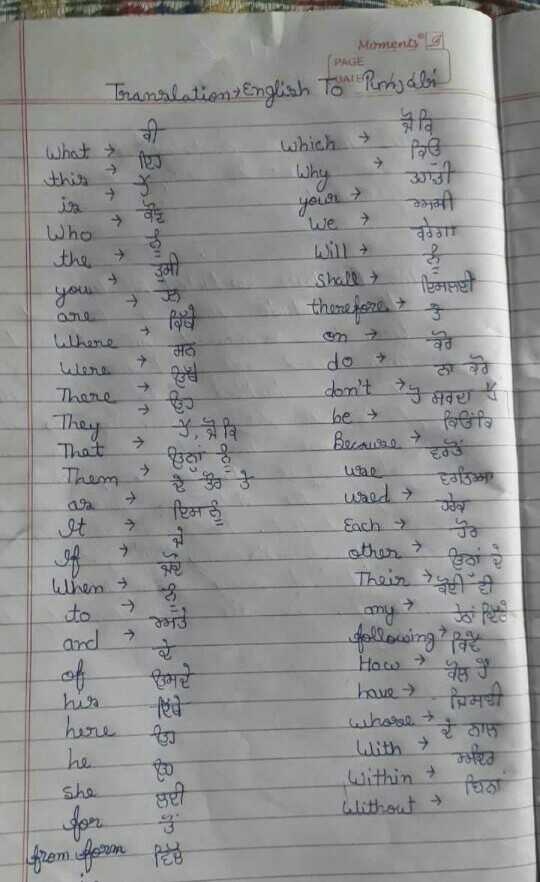 Moments
PAGE
DATE
Translation → English To Punjabi
What → ਕੀ
this → ਇਹ
is → ਹੈ
Who → ਕੌਣ
the → ਨੂੰ
you → ਤੁਸੀ
are → ਹਨ
Where → ਕਿੱਥੇ
Were → ਸਨ
There → ਉਥੇ
They → ਉਹ
That → ਹੈ, ਜੋ ਕਿ
Them → ਉਨਾਂ ਨੂੰ
as → ਦੇ ਤੌਰ ਤੇ
It → ਇਸ ਨੂੰ
If → ਜੇ
When → ਜਦੋਂ
to → ਨੂੰ
and → ਅਤੇ
of ਦੇ
his ਉਸਦੇ
here ਇੱਥੇ
he ਉਹ
she ਉਹ
for ਲਈ
from form ਤੋਂ
ਵਿੱਚੋਂ
which → ਜੋ ਕਿ
Why → ਕਿਉਂ
your →
We → ਅਸੀ
Will → ਕਰੇਗਾ
Shall → ਨੂੰ
therefore → ਇਸਲਈ
on → ਤੇ
do → ਕਰੋ
don't → ਨਾ ਕਰੋ
be → ਹੋ ਸਕਦਾ ਹੈ
Because → ਕਿਉਂਕਿ
use ਵਰਤੋਂ
used → ਵਰਤਿਆ
Each → ਹਰੇਕ
other → ਹੋਰ
Their → ਉਨਾਂ ਦੇ
any → ਕੋਈ ਵੀ
following →
How → ਕਿਵੇਂ
have → ਕੋਲ ਹੈ
whose → ਜਿਸਦੀ
With → ਦੇ ਨਾਲ
Within → ਅੰਦਰ
Without → ਬਿਨਾਂ